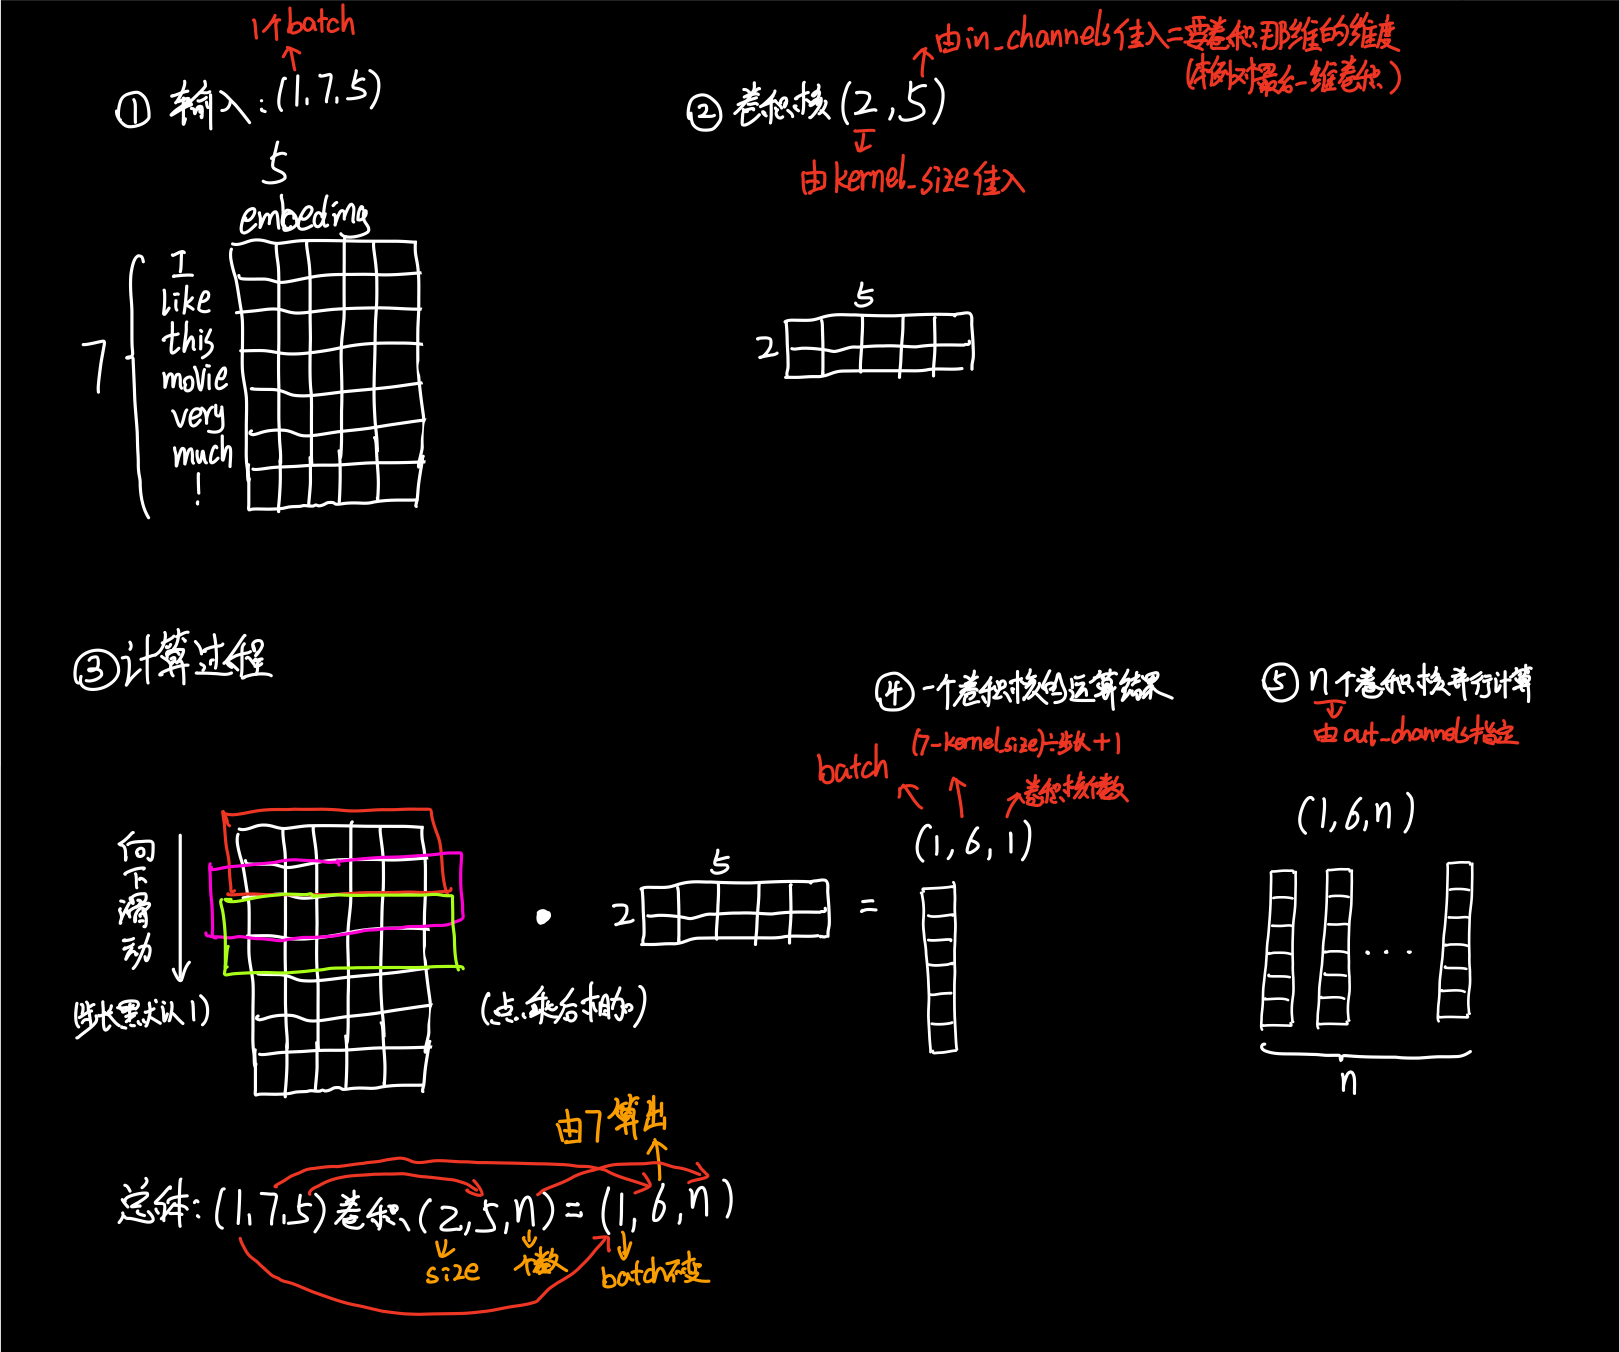 1个batch
① 输入:(1,7,5)
5
embeding
7
I
like
this
movie
very
much
!
② 卷积核(2,5)
由in_channels传入=要卷积那维的维度
(本例对最后一维卷积)
由kernel_size传入
5
2
③计算过程
向下滑动
(步长默认1)
•
(点乘后相加)
5
2
=
④一个卷积核的运算结果
(7-kernel_size)÷步长+1
batch
卷积核个数
(1,6,1)
⑤n个卷积核并行计算
由out_channels指定
(1,6,n)
...
n
由7算出
总体:(1,7,5)卷积(2,5,n)=(1,6,n)
size
个数
batch不变